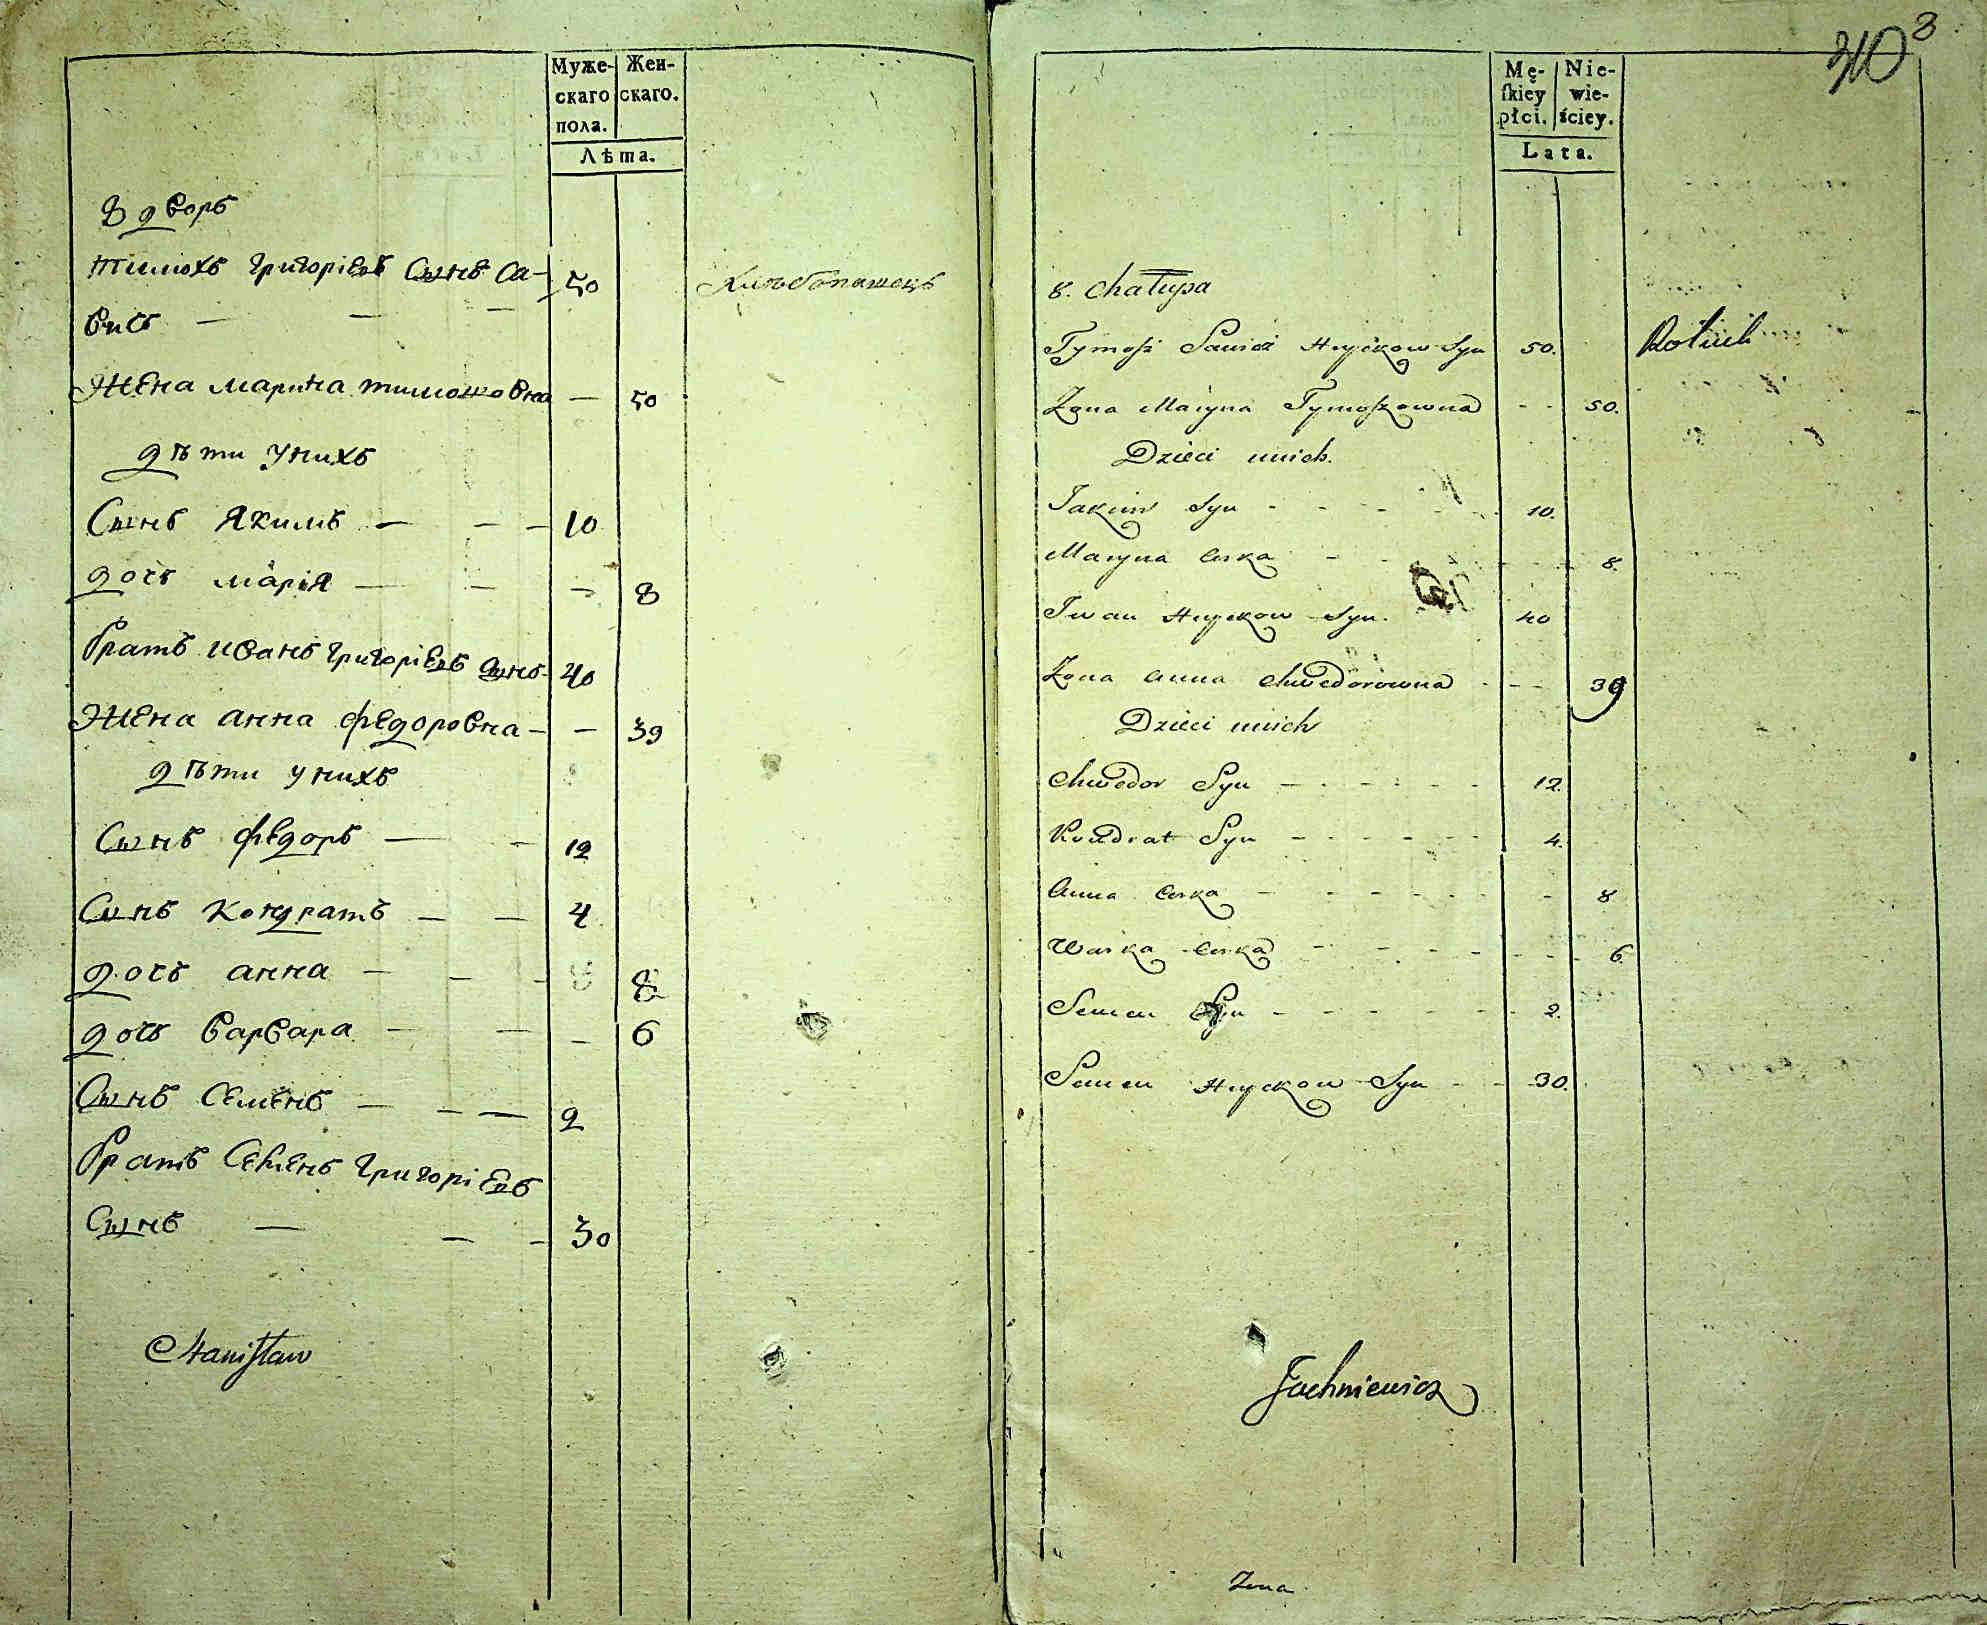 Муже- Жен-
скаго скаго.
пола.
Лѣта.
8 дворъ
Тимохъ Григоріевъ Сынъ Са- 50 Хлѣбопашецъ
вичъ — — —
Жена марина тимошковна — 50
дѣти унихъ
Сынъ Якимъ — — — 10
дочъ марія — — — 8
братъ иванъ григоріевъ Сынъ 40
Жена анна федоровна — — 39
дѣти унихъ
Сынъ федоръ — — 12
Сынъ кондратъ — — 4
дочъ анна — — - 8
дочъ варвара — — — 6
Сынъ Семенъ — — — 2
братъ Семенъ григоріевъ
Сынъ — — — 30
Stanisław
310 8
Mę- Nie-
ſkiey wie-
płci. ściey.
Lata.
8. Chałupa
Tymosz Sawicz Hryckow Syn 50. Rolnik
Zona Maryna Tymoszowna - - 50.
Dzieci unich.
Jakim Syn - - - - 10.
Maryna Corka - - - - 8.
Iwan Hryckow Syn. 40
Zona Anna Chwedorowna - - - 39
Dzieci unich
Chwedor Syn - - - - - 12.
Kondrat Syn - - - - - 4.
Anna Corka - - - - - - 8
Warka Corka - - - - - - 6.
Semen Syn - - - - - - 2.
Semen Hryckow Syn - - 30.
Jachniewicz
Zona